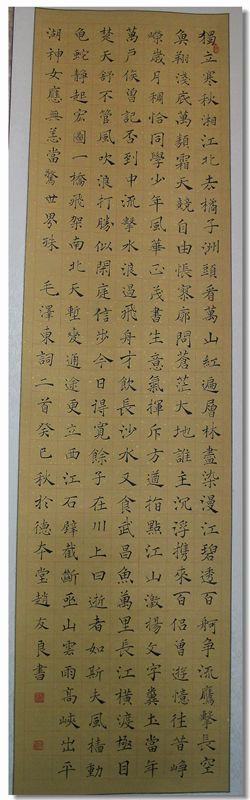 獨立寒秋湘江北去橘子洲頭看萬山紅遍層林盡染漫江碧透百舸爭流鷹擊長空
魚翔淺底萬類霜天競自由悵寥廓問蒼茫大地誰主沉浮携來百侶曾遊憶往昔崢
嶸歲月稠恰同學少年風華正茂書生意氣揮斥方遒指點江山激揚文字糞土當年
萬戶侯曾記否到中流擊水浪遏飛舟才飲長沙水又食武昌魚萬里長江橫渡極目
楚天舒不管風吹浪打勝似閑庭信步今日得寬餘子在川上曰逝者如斯夫風檣動
龜蛇靜起宏圖一橋飛架南北天塹變通途更立西江石壁截斷巫山雲雨高峽出平
湖神女應無恙當驚世界殊 毛澤東詞二首癸巳秋於德本堂趙友良書